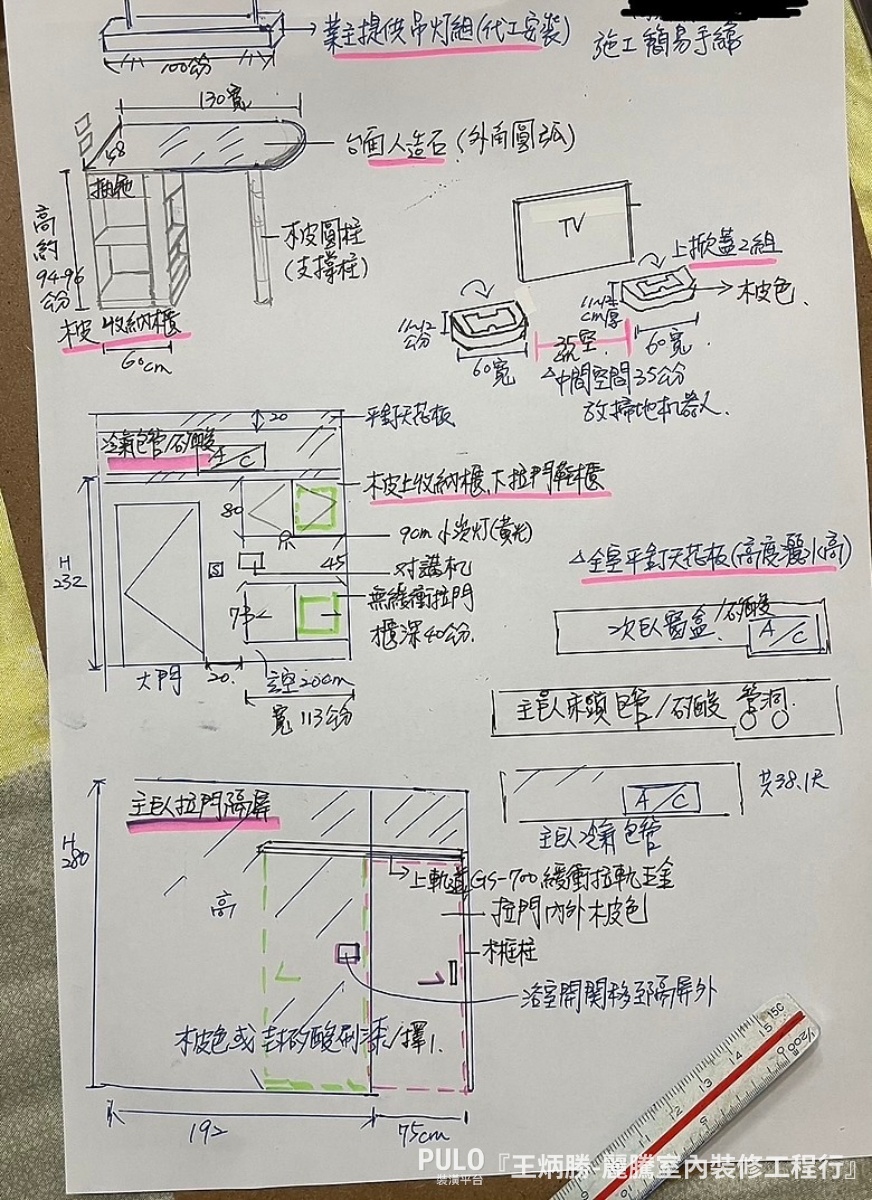 業主提供吊灯組(代工安裝)
施工簡易手繪
100公分
130寬
48
台面人造石(外角圓弧)
抽屜
高約94-96公分
木皮圓柱
(支撐柱)
木皮收納櫃
60cm
TV
上掀蓋2組
木皮色、
11~12公分
11~12cm厚
60寬
35空
60寬
△中間空間35公分
放掃地机器人.
20
平釘天花板
冷氣包管/矽酸
A/C
木皮上收納櫃、大拉門鞋櫃
80
9cm小崁灯(黃光)
对講机
45
無緩衝拉門
櫃深40公分.
H
232
S
73
大門
20.
懸空20cm
寬113公分
△全室平釘天花板(高度灑水高)
次臥窗盒/矽酸
A/C
主臥床頭包管/矽酸 管洞
A/C
共38.1尺
主臥冷氣包管
主臥拉門隔屏
H
280
上軌道GS-700緩衝拉軌五金
高
拉門內外木皮色
木框柱
浴室開関移至隔屏外
木皮色或封矽酸刷漆/擇1.
192
75cm
15C
15
14
13
12
11
1/200m
PULO
裝潢平台
『王炳勝-麗騰室內裝修工程行』